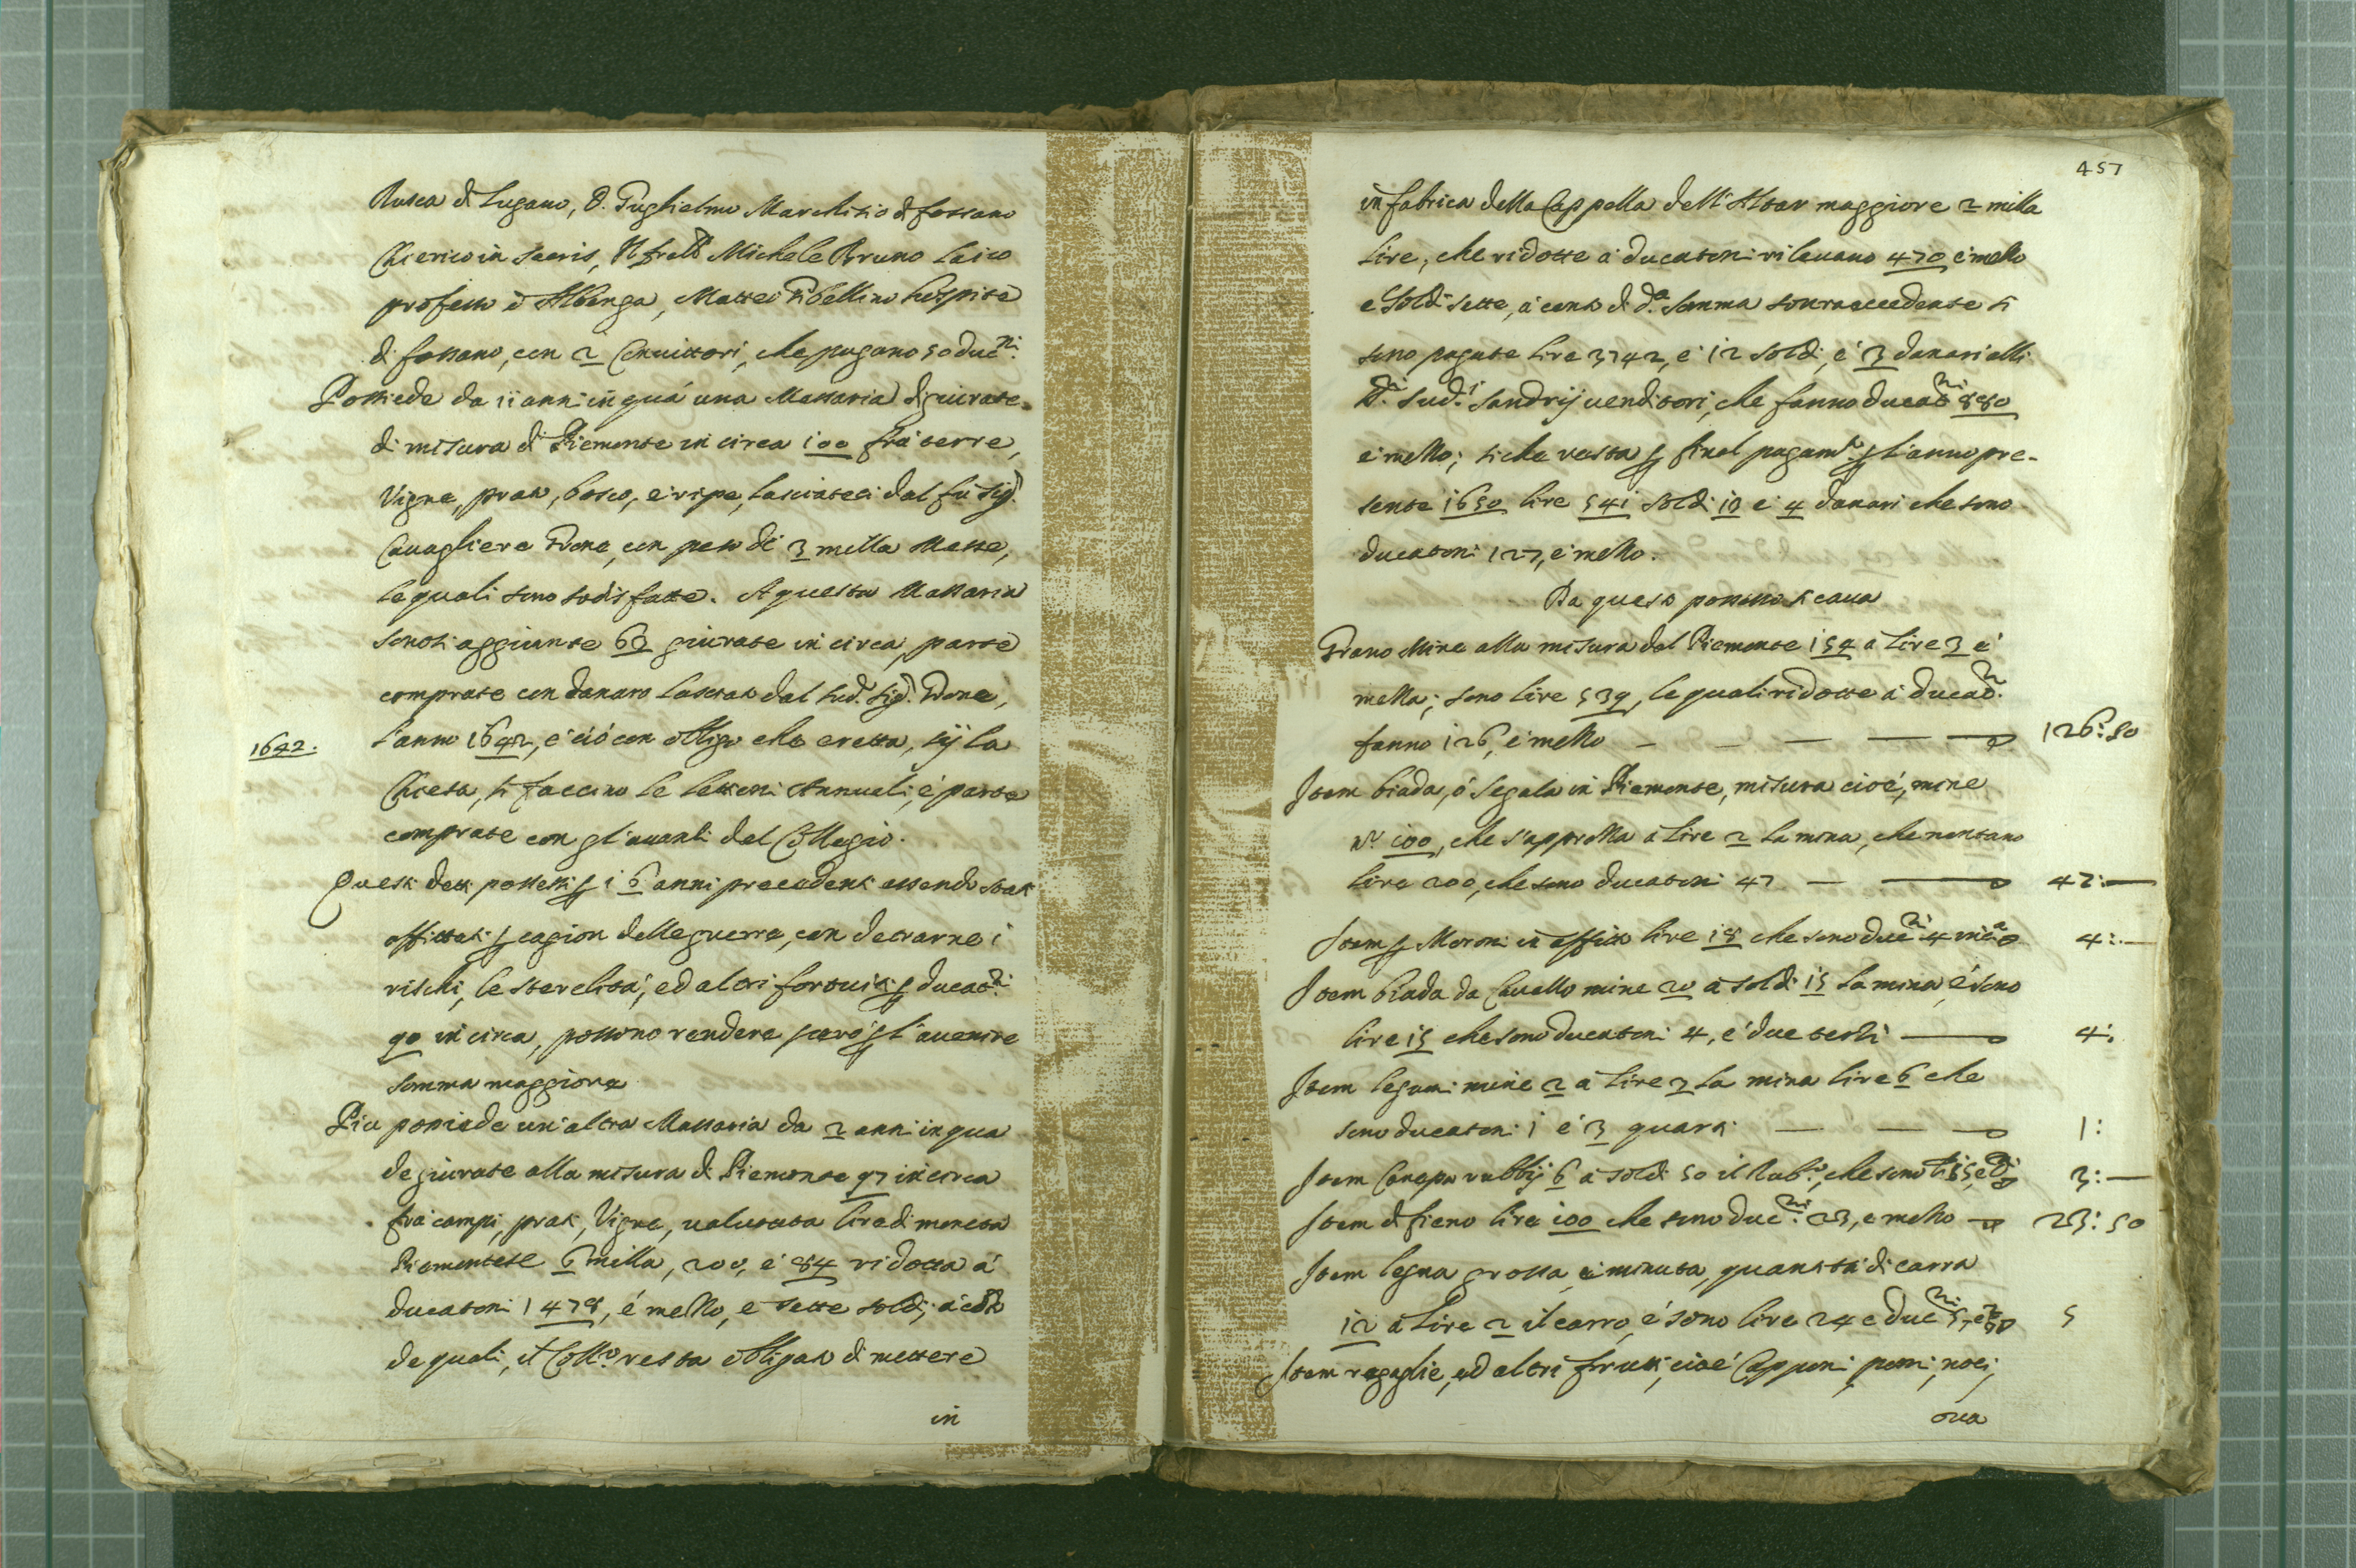 Rusca di Lugano, D. Guglielmo Marchisio di fossano
Chierico in sacris, Il fratello Michele Bruno laico
professo d'Albenga, Matteo Gibellino hospite
di fossano, con 2 Convittori, che pagano 50 duc.ni
Possiede da 11 anni in quá una Massaria di giurate
di misura di Piemonte in circa 100 frá terre,
Vigne, prati, bosco, e ripe, lasciateci dal fu sig.
Cavagliere Dona, con peso di 3 milla Messe,
le quali sono sodisfatte. A questa Massaria
sonosi aggiunte 60 giurate in circa, parte
comprate con danaro lasciato dal sud. sig. Dona,
1642.
l'anno 1642, e ció con obligo che eretta, sij la
Chiesa, si faccino le lettioni Annuali, é parte
comprate con gl'avanzi del Collegio.
Questi detti possessi per i 6 anni precedenti essendo stati
affittati per cagion delle guerre, con detrarne i
rischi, le sterelitá, ed altri fortuiti per ducat.ni
90 in circa, possono rendere peró per l'avenire
somma maggiore
Piu possiede un'altra Massaria da 2 anni in qua
de giurate alla misura di Piemonte 97 in circa
frá campi, prati, Vigne, valutata lire di moneta
Piemontese 6 milla, 200, é 84 ridotta á
ducatoni 1478, é mezzo, e sette soldi, á conto
de quali, il Coll.o resta obligato di mettere
in
457
in fabrica della Cappella dell'Altar maggiore 2 milla
lire, che ridotte á ducatoni rilevano 470 é mezzo
e soldi sette, á conto di d.a somma sourraccedente si
sono pagate lire 3742, é 12 soldi, é 3 danari alli
sud.i Sandrij venditori, che fanno ducat.ni 880
é mezzo; si che resta per final pagam.to per l'anno pre-
sente 1650 lire 541 soldi 10 é 4 danari che sono
ducatoni 127, é mezzo.
Da questo possesso si cava
Grano Mine alla misura del Piemonte 154 a lire 3 é
mezza; sono lire 539, le quali ridotte á ducat.ni
fanno 126, é mezzo 126:50
Item biada, ó segala in Piemonte, misura cioé, mine
n.o 100, che s'apprezza á lire 2 la mina, che montano
lire 200, che sono ducatoni 47 47:
Item per Moroni in affitto lire 18 che sono duc.ni 4 4:
Item biada da Cavallo mine 20 á soldi 15 la mina, é sono
lire 15 che sono ducatoni 4, é due terzi 4:
Item legumi mine 2 a lire 3 la mina lire 6 che
sono ducatoni 1 é 3 quarti 1:
Item Canepa rubbij 6 á soldi 50 il Rub.o, che sono 3:
Item di fieno lire 100 che sono duc.ni 23, e mezzo 23:50
Item legna grossa, é minuta, quantitá di carra
12 á lire 2 il carro, é sono lire 24 e duc.ni 5, 5
Item regaglie, ed altri frutti, cioé Capponi, pomi, noci,
oua